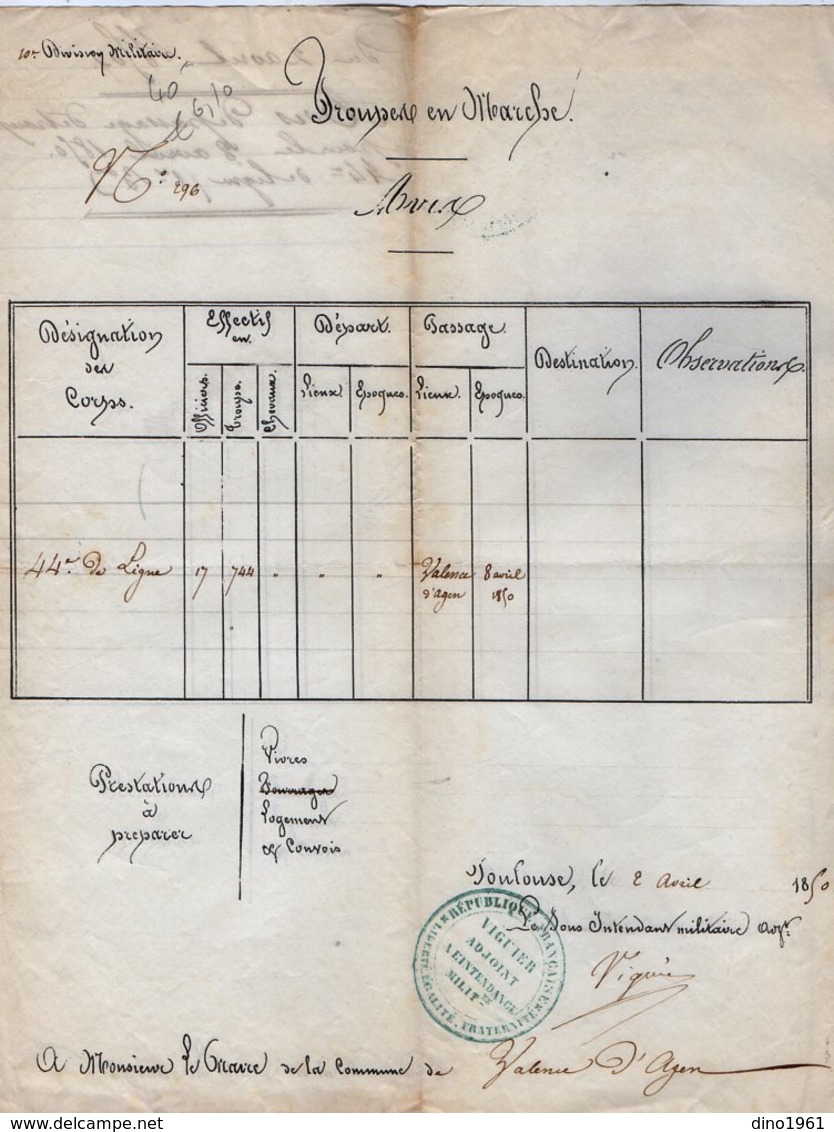 10e Division Militaire.
40
610
Troupes en Marche.
N.o 296
Avis
Désignation des Corps.
Effectif en
Officiers. Troupe. Chevaux.
Départ.
Lieux. Epoques.
Passage.
Lieux. Epoques.
Destination.
Observations.
44e de Ligne 17 744 " " " Valence 8 avril
d'agen 1850
Prestations
à
préparer
Vivres
Fourrages
Logement
et Convois
Toulouse, le 2 avril 1850
Le Sous Intendant militaire adjt.
Viguier
RÉPUBLIQUE FRANÇAISE
LIBERTÉ, ÉGALITÉ, FRATERNITÉ
VIGUIER
ADJOINT
A L'INTENDANCE
MILITRE
A Monsieur le Maire de la Commune de Valence d'Agen
dino1961